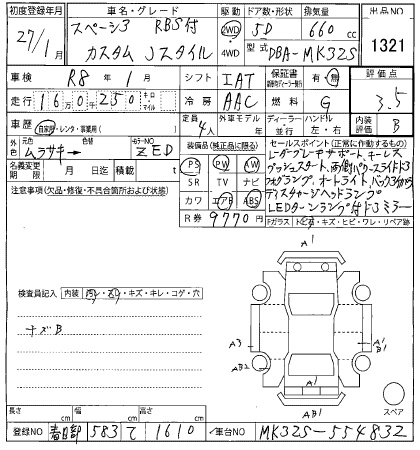 初度登録年月 車名・グレード 駆動 ドア数・形状 排気量 出品NO
27/1 スペーシア RBS付 カスタム Jスタイル 2WD 4WD 5D 660 cc
型式 DBA-MK32S 1321
車検 R8年 1月 シフト IAT 保証書 有・無 評価点
走行 16万0千250 キロ・マイル 冷房 AAC 燃料 G 3.5
車歴 自家用・レンタ・事業用( ) 定員 4人 外車モデル 年 ディーラー・並行 ハンドル 左・右 内装評価 B
外色 元色 ムラサキー カラーNO ZED
名義変更期限 月 日 積載 t
装備品(純正品に限る) セールスポイント(正常に作動するもの)
PS PW AW
SR TV ナビ
カワ エアB ABS
R券 9770円
レーダーブレーキサポート、キーレス
プッシュスタート、両側パワースライドドア
フォグランプ、オートライト、バックカメラ
ディスチャージヘッドランプ
LEDターンランプ付ドアミラー
Fガラス トビ石・キズ・ヒビ・ワレ・リペア跡
注意事項(欠品・修復・不具合箇所および状態)
検査員記入 内装 汚レ・スレ・キズ・キレ・コゲ・穴
キズB
A1
A3
A1
B1
AB2
A1
AB1
スペア
長さ cm 幅 cm 高さ cm
登録NO 春日部 583 て 1610 車台NO MK32S-554832